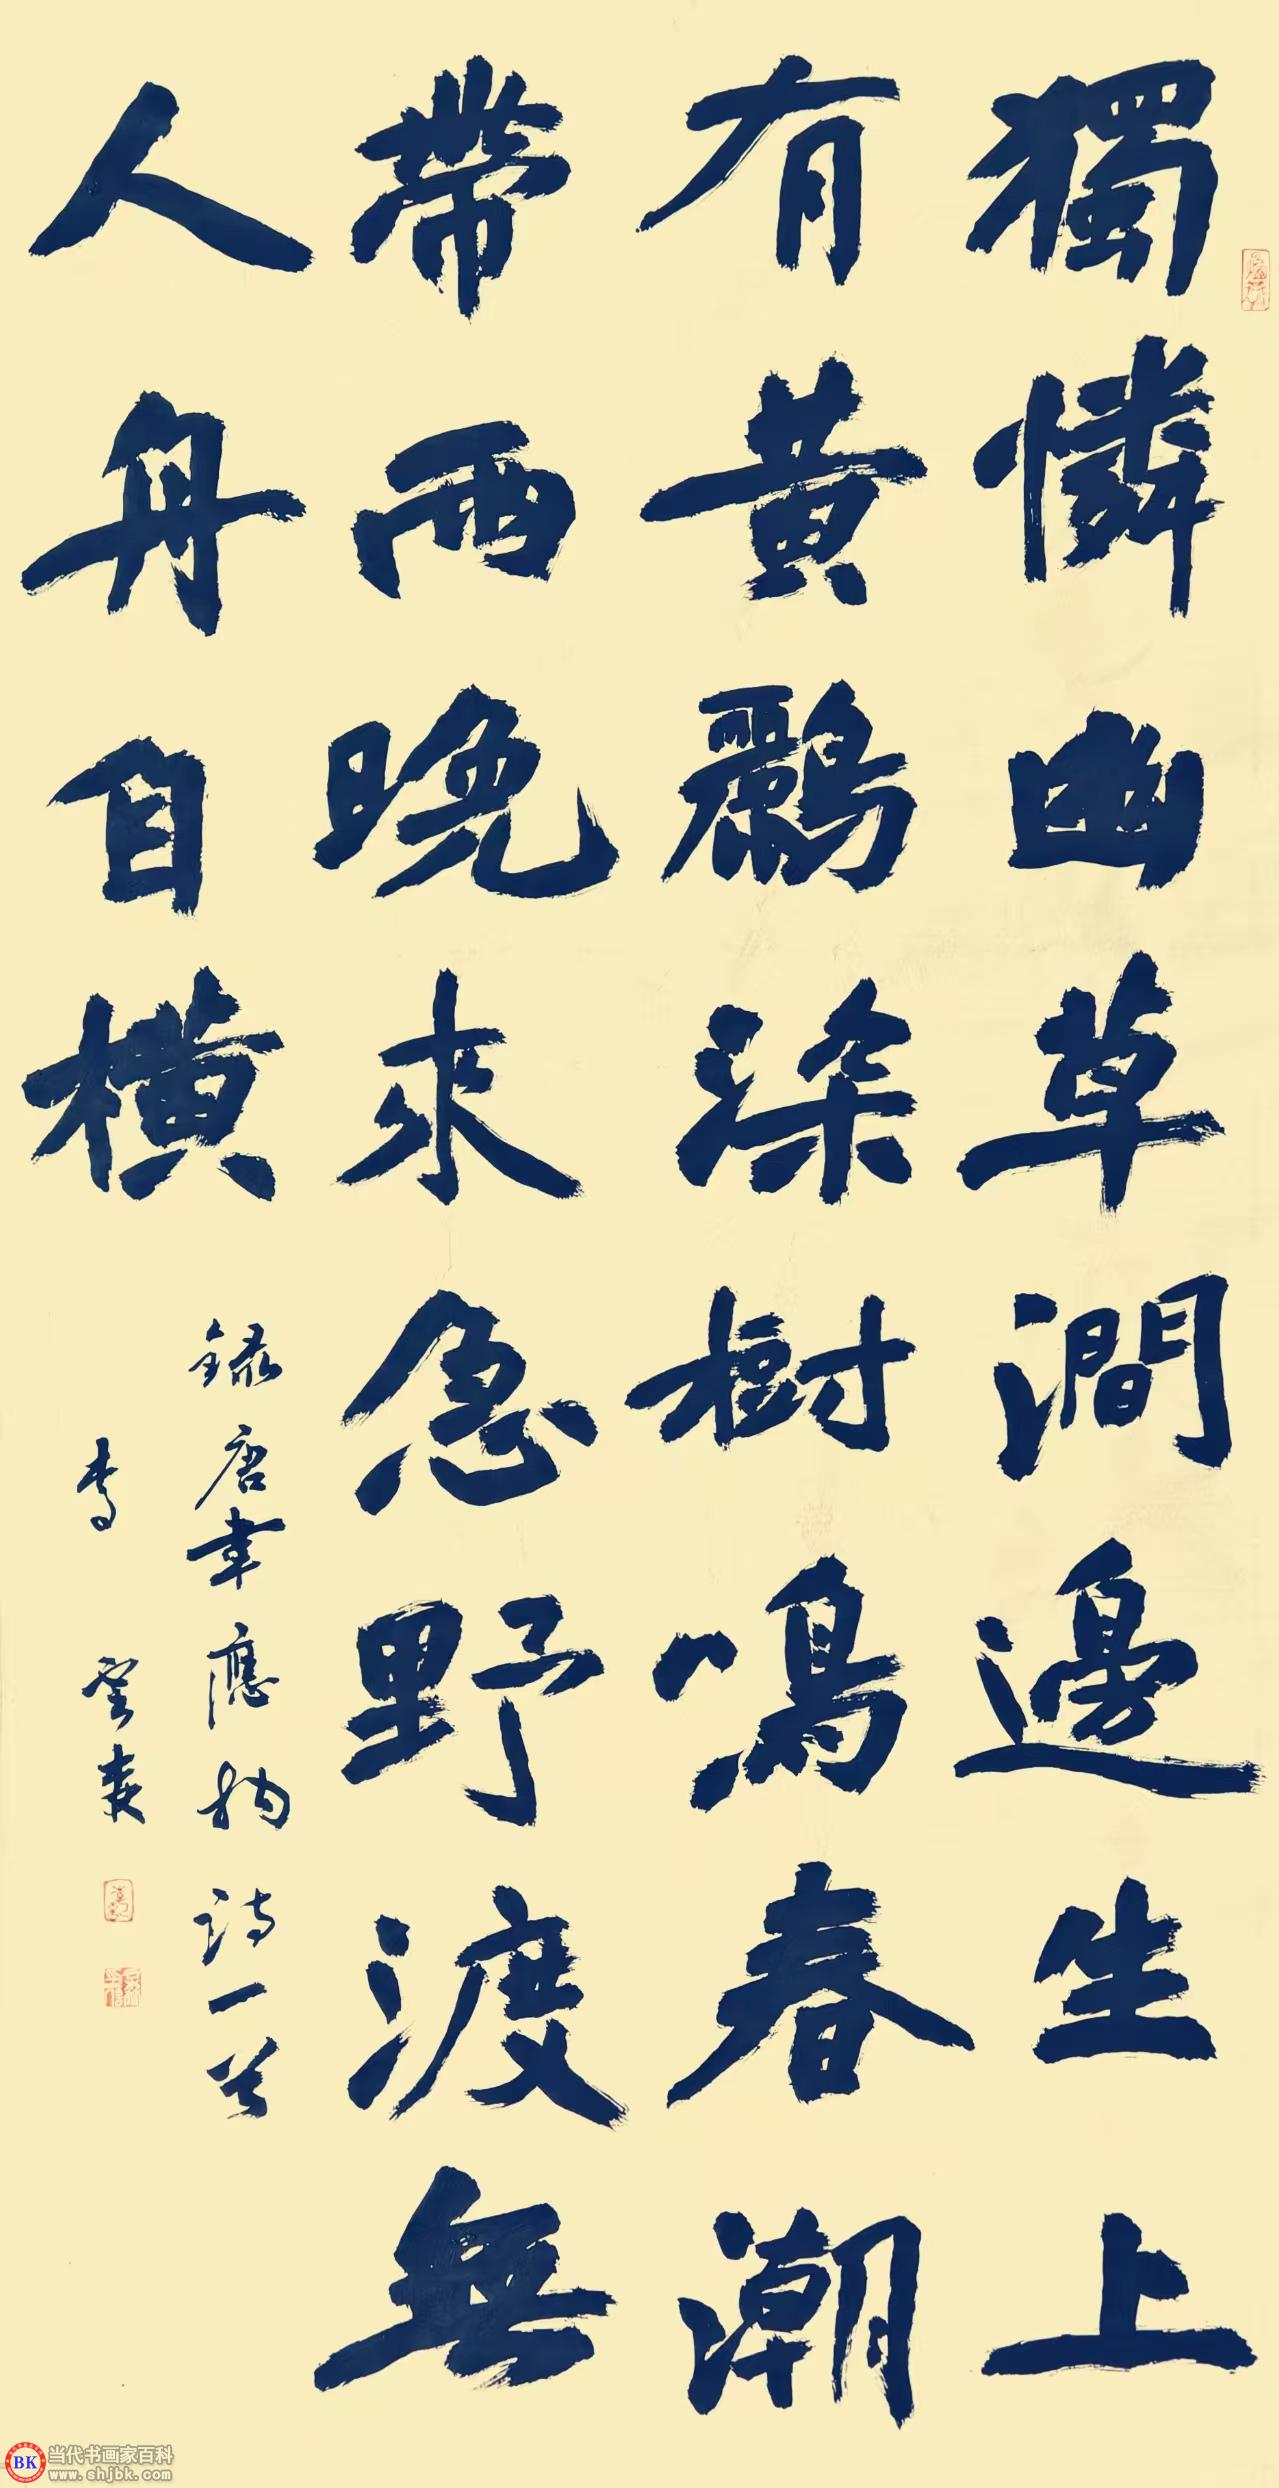 獨憐幽草澗邊生上
有黃鸝深樹鳴春潮
帶雨晚來急野渡無
人舟自橫
錄唐韋應物詩一首
BK
当代书画家百科
www.shjbk.com